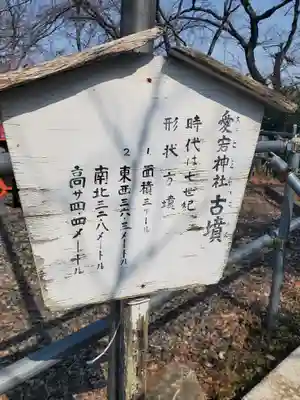 愛宕神社古墳
時代は七世紀
形状 方墳
1 面積三アール
2 東西三六.三メートル
南北三三.八メートル
高サ四.四メートル